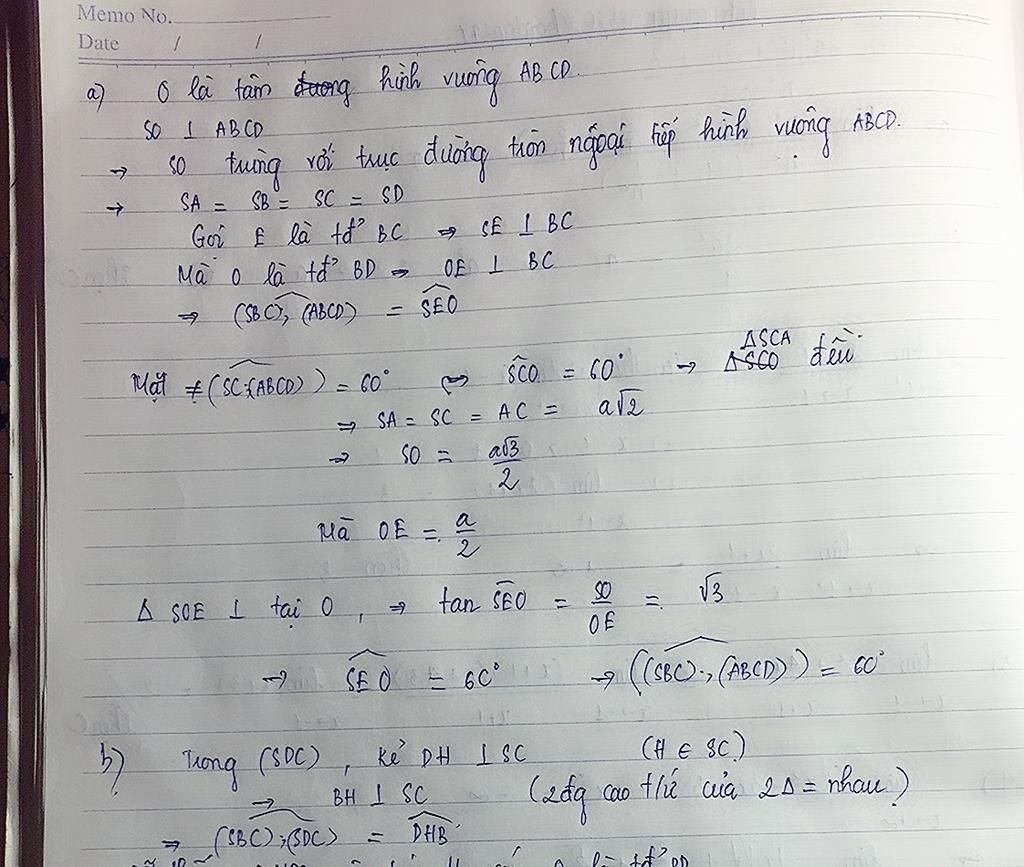 Memo No.
Date / /
a) O là tâm đương hình vuông ABCD.
SO ⊥ ABCD
→ SO trùng với trục đường tròn ngoại tiếp hình vuông ABCD.
→ SA = SB = SC = SD
Gọi E là tđ² BC ⇒ SE ⊥ BC
Mà O là tđ² BD ⇒ OE ⊥ BC
⇒ (SBC), (ABCD) = SEO
Mặt ≠ (SC;(ABCD)) = 60° ⇔ SCO = 60° → ΔSCO ΔSCA đều
⇒ SA = SC = AC = a√2
⇒ SO = a√3/2
Mà OE = a/2
Δ SOE ⊥ tại O, ⇒ tan SEO = SO/OE = √3
→ SEO = 60° → ((SBC);(ABCD)) = 60°
b) Trong (SDC), kẻ DH ⊥ SC (H ∈ SC)
⇒ BH ⊥ SC (2 đg cao t/ứ của 2Δ = nhau)
⇒ (SBC);(SDC) = DHB
O là tđ² BD